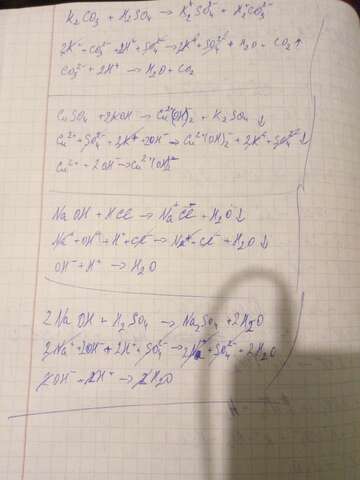 K₂CO₃ + H₂SO₄ → K₂⁺SO₄²⁻ + H₂⁺CO₃²⁻
2K⁺ + CO₃²⁻ + 2H⁺ + SO₄²⁻ → 2K⁺ + SO₄²⁻ + H₂O + CO₂↑
CO₃²⁻ + 2H⁺ → H₂O + CO₂
CuSO₄ + 2KOH → Cu²⁺(OH)₂⁻ + K₂SO₄ ↓
Cu²⁺ + SO₄²⁻ + 2K⁺ + 2OH⁻ → Cu²⁺(OH)₂⁻ + 2K⁺ + SO₄²⁻ ↓
Cu²⁺ + 2OH⁻ → Cu²⁺(OH)₂⁻
NaOH + HCl → Na⁺Cl⁻ + H₂O ↓
Na⁺ + OH⁻ + H⁺ + Cl⁻ → Na⁺ + Cl⁻ + H₂O ↓
OH⁻ + H⁺ → H₂O
2NaOH + H₂SO₄ → Na₂SO₄ + 2H₂O
2Na⁺ + 2OH⁻ + 2H⁺ + SO₄²⁻ → 2Na⁺ + SO₄²⁻ + 2H₂O
2OH⁻ + 2H⁺ → 2H₂O